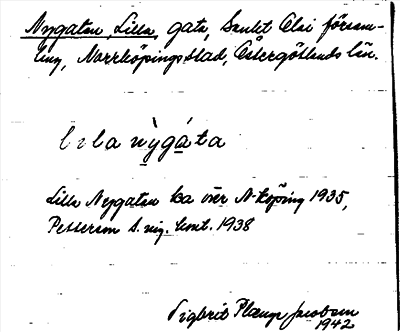 Nygatan, Lilla, gata, Sankt Olai försam-
ling, Norrköpings stad, Östergötlands län.
lila nỳgáta
Lilla Nygatan ka över N-köping 1935,
1938
Sigbrit Plænge Jacobson
1942